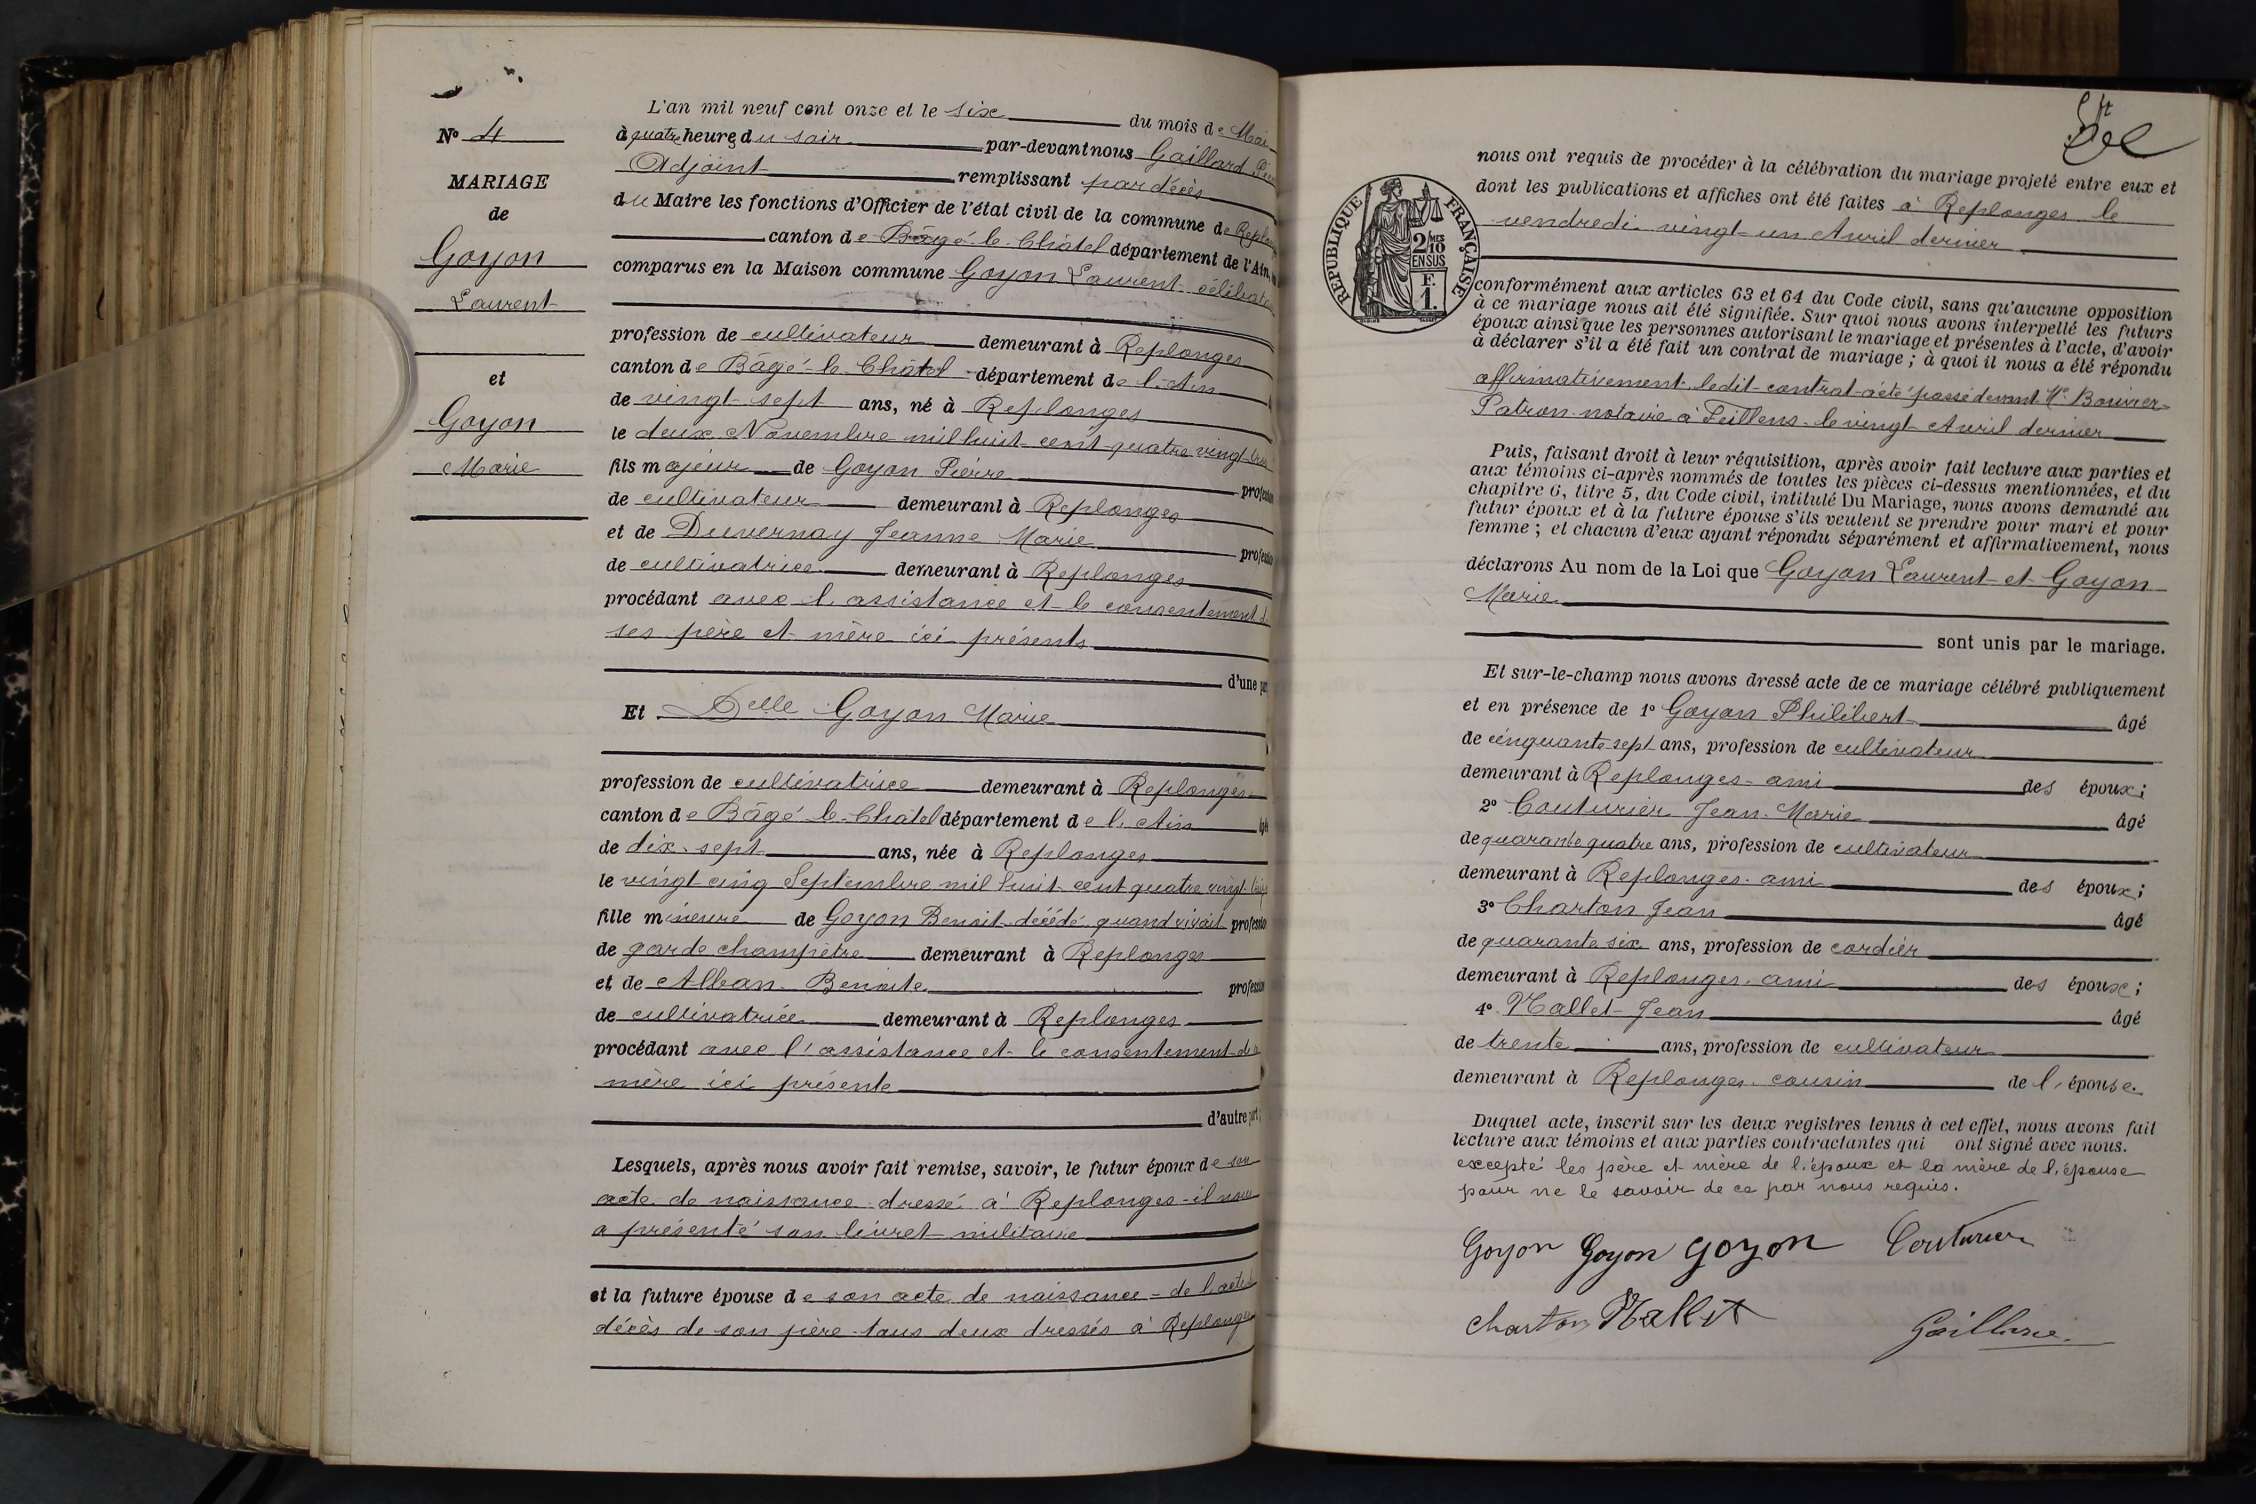 N° 4
MARIAGE
de
Goyon
Laurent
et
Goyon
Marie
L'an mil neuf cent onze et le six du mois de Mai
à quatre heures du soir par-devant nous Gaillard
Adjoint remplissant par décès
du Maire les fonctions d'Officier de l'état civil de la commune de Replonges
canton de Bâgé-le-Châtel département de l'Ain,
comparus en la Maison commune Goyon Laurent célibataire
profession de cultivateur demeurant à Replonges
canton de Bâgé-le-Châtel département de l'Ain
de vingt-sept ans, né à Replonges
le deux Novembre mil huit cent quatre vingt trois
fils majeur de Goyon Pierre profession
de cultivateur demeurant à Replonges
et de Duvernay Jeanne Marie profession
de cultivatrice demeurant à Replonges
procédant avec l'assistance et le consentement de
ses père et mère ici présents
d'une part
Et Delle Goyon Marie
profession de cultivatrice demeurant à Replonges
canton de Bâgé-le-Châtel département de l'Ain âgée
de dix-sept ans, née à Replonges
le vingt cinq Septembre mil huit cent quatre vingt
fille mineure de Goyon Benoit décédé quand vivait profession
de garde champêtre demeurant à Replonges
et de Alban Benoite profession
de cultivatrice demeurant à Replonges
procédant avec l'assistance et le consentement de sa
mère ici présente
d'autre part ;
Lesquels, après nous avoir fait remise, savoir, le futur époux de son
acte de naissance dressé à Replonges - il nous
a présenté son livret militaire
et la future épouse de son acte de naissance - de l'acte de
décès de son père tous deux dressés à Replonges
nous ont requis de procéder à la célébration du mariage projeté entre eux et
dont les publications et affiches ont été faites à Replonges le
vendredi vingt-un Avril dernier
REPUBLIQUE FRANÇAISE
2/10 MES
EN SUS
F.
1.
conformément aux articles 63 et 64 du Code civil, sans qu'aucune opposition
à ce mariage nous ait été signifiée. Sur quoi nous avons interpellé les futurs
époux ainsi que les personnes autorisant le mariage et présentes à l'acte, d'avoir
à déclarer s'il a été fait un contrat de mariage ; à quoi il nous a été répondu
affirmativement. ledit contrat a été passé devant Me Bouvier
Patron notaire à Feillens le vingt Avril dernier
Puis, faisant droit à leur réquisition, après avoir fait lecture aux parties et
aux témoins ci-après nommés de toutes les pièces ci-dessus mentionnées, et du
chapitre 6, titre 5, du Code civil, intitulé Du Mariage, nous avons demandé au
futur époux et à la future épouse s'ils veulent se prendre pour mari et pour
femme ; et chacun d'eux ayant répondu séparément et affirmativement, nous
déclarons Au nom de la Loi que Goyon Laurent et Goyon
Marie
sont unis par le mariage.
Et sur-le-champ nous avons dressé acte de ce mariage célébré publiquement
et en présence de 1° Goyon Philibert âgé
de cinquante sept ans, profession de cultivateur
demeurant à Replonges - ami des époux ;
2° Couturier Jean-Marie âgé
de quarante quatre ans, profession de cultivateur
demeurant à Replonges - ami des époux ;
3° Charton Jean âgé
de quarante six ans, profession de cordier
demeurant à Replonges - ami des époux ;
4° Mallet Jean âgé
de trente ans, profession de cultivateur
demeurant à Replonges - cousin de l'épouse.
Duquel acte, inscrit sur les deux registres tenus à cet effet, nous avons fait
lecture aux témoins et aux parties contractantes qui ont signé avec nous.
excepté les père et mère de l'époux et la mère de l'épouse
pour ne le savoir de ce par nous requis.
Goyon Goyon Goyon Couturier
Charton Mallet
Gaillard